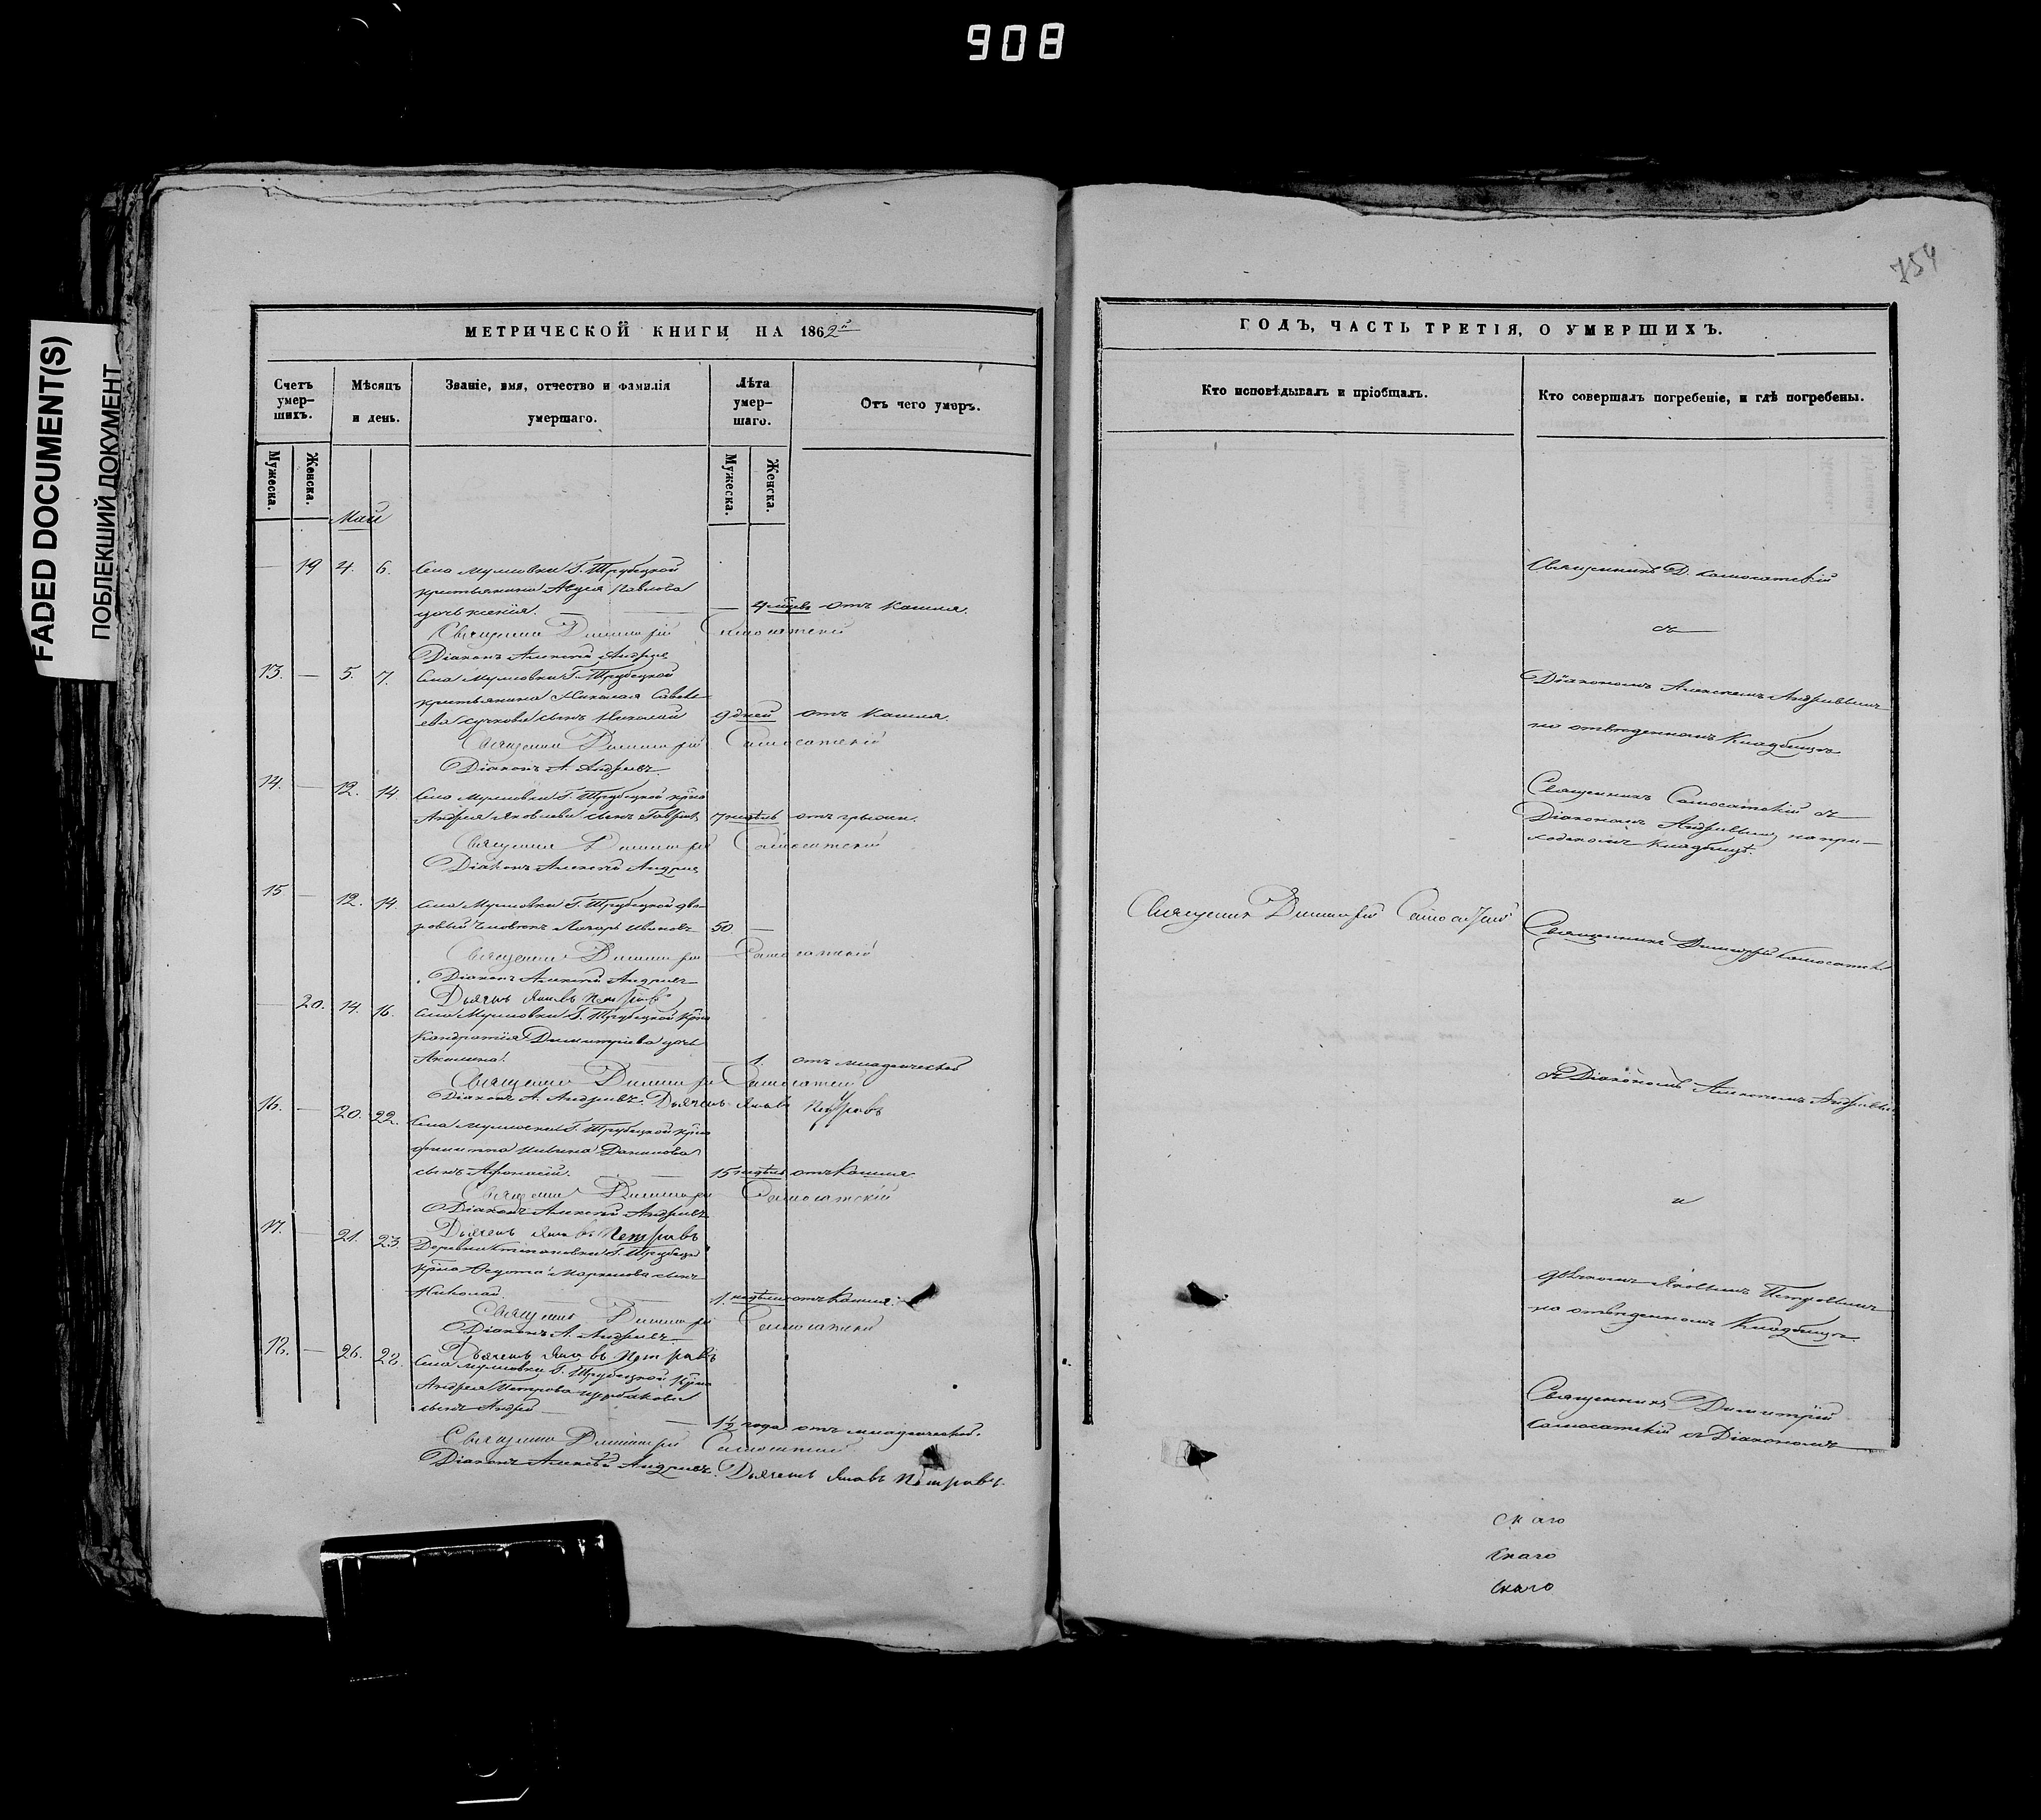 908
FADED DOCUMENT(S)
ПОБЛЕКШИЙ ДОКУМЕНТ
754
МЕТРИЧЕСКОЙ КНИГИ НА 1862й
Счетъ умер-шихъ.
Мѣсяцъ и день.
Званіе, имя, отчество и фамилія умершаго.
Лѣта умер-шаго.
Отъ чего умеръ.
Мужеска.
Женска.
Мужеска.
Женска.
Май
19 4. 6. Села Мулловки Г. Трубецкой
крестьянина Павлова
дочь Ксенія. отъ кашля.
Священникъ Димитрій Самосатскій
Діаконъ Алексѣй Андреевъ
13. 5. 7. Села Мулловки Г. Трубецкой
крестьянина Николая Савель-
ева сынъ Николай 9 дней отъ кашля.
Священникъ Димитрій Самосатскій
Діаконъ А. Андреевъ
14. 12. 14. Села Мулловки Г. Трубецкой крна
Андрея Яковлева сынъ Гаврiилъ 7 недѣль отъ грыжи.
Священникъ Димитрій Самосатскій
Діаконъ Алексѣй Андреевъ
15 12. 14. Села Мулловки Г. Трубецкой дво-
ровый человекъ Лазарь Ивановъ 50
Священникъ Димитрій Самосатскій
Діаконъ Алексѣй Андреевъ
Дьячекъ Яковъ Петровъ
20. 14. 16. Села Мулловки Г. Трубецкой крна
Кондратія Димитріева дочь
Акилина. 1. отъ младенческой
Священникъ Димитрій Самосатскій
Діаконъ А. Андреевъ. Дьячекъ Яковъ Петровъ
16. 20. 22. Села Мулловки Г. Трубецкой крна
Филиппа Данилова
сынъ Афанасій. 15 недѣль отъ кашля
Священникъ Димитрій Самосатскій
Діаконъ Алексѣй Андреевъ
Дьячекъ Яковъ Петровъ
17. 21. 23. Деревни Степановки Г. Трубецкой
крна Федота сынъ
Николай. 1. недѣли отъ кашля.
Священникъ Димитрій Самосатскій
Діаконъ А. Андреевъ
Дьячекъ Яковъ Петровъ
18. 26. 28. Села Мулловки Г. Трубецкой крна
Андрея Петрова
сынъ Андрей 1½ года отъ младенческой.
Священникъ Димитрій Самосатскій
Діаконъ Алексѣй Андреевъ. Дьячекъ Яковъ Петровъ.
ГОДЪ, ЧАСТЬ ТРЕТІЯ, О УМЕРШИХЪ.
Кто исповѣдывалъ и пріобщалъ.
Кто совершалъ погребеніе, и гдѣ погребены.
Священникъ Д. Самосатскій
съ
Діакономъ Алексеемъ Андреевымъ
на отведенномъ Кладбищѣ
Священникъ Самосатскій съ
Діакономъ Андреевымъ на при-
ходскомъ кладбищѣ.
Священникъ Димитрій Самосатскій
Священникъ Димитрій Самосатскій
съ Діакономъ Алексеемъ Андреевымъ
и
дьячкомъ Яковымъ Петровымъ
на отведенномъ Кладбищѣ
Священникъ Димитрій
Самосатскій съ Діакономъ
скаго
скаго
скаго